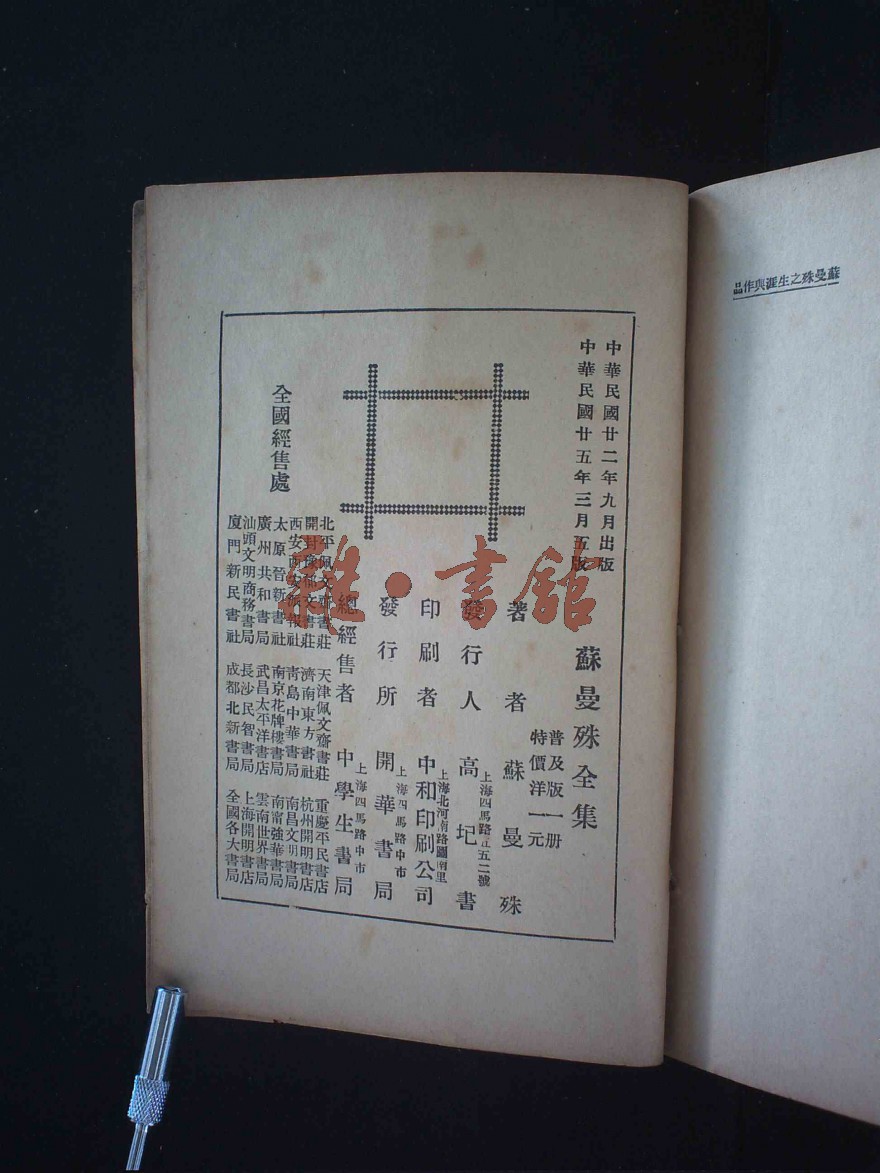 蘇曼殊之生涯與作品
中華民國廿二年九月出版
中華民國廿五年三月五版
蘇曼殊全集
普及版一册
特價洋一元
著者 蘇曼殊
發行人 高圯書
上海四馬路 五二號
印刷者 中和印刷公司
上海北河南路圖南里
發行所 開華書局
上海四馬路中市
總經售者 中學生書局
上海四馬路中市
全國經售處
北平佩文齋書莊 天津佩文齋書莊 重慶平民書店
開封豫郁文書莊 濟南東方書社 杭州開明書店
西安西安派報社 青島中華書局 南昌文明書局
太原晉新書社 南京花牌樓書局 南甯強華書局
廣州共和書局 武昌太平洋書店 雲南世界書局
汕頭文明商務書局 長沙民智書局 上海開明書店
廈門新民書社 成都北新書局 全國各大書局
雜·書館